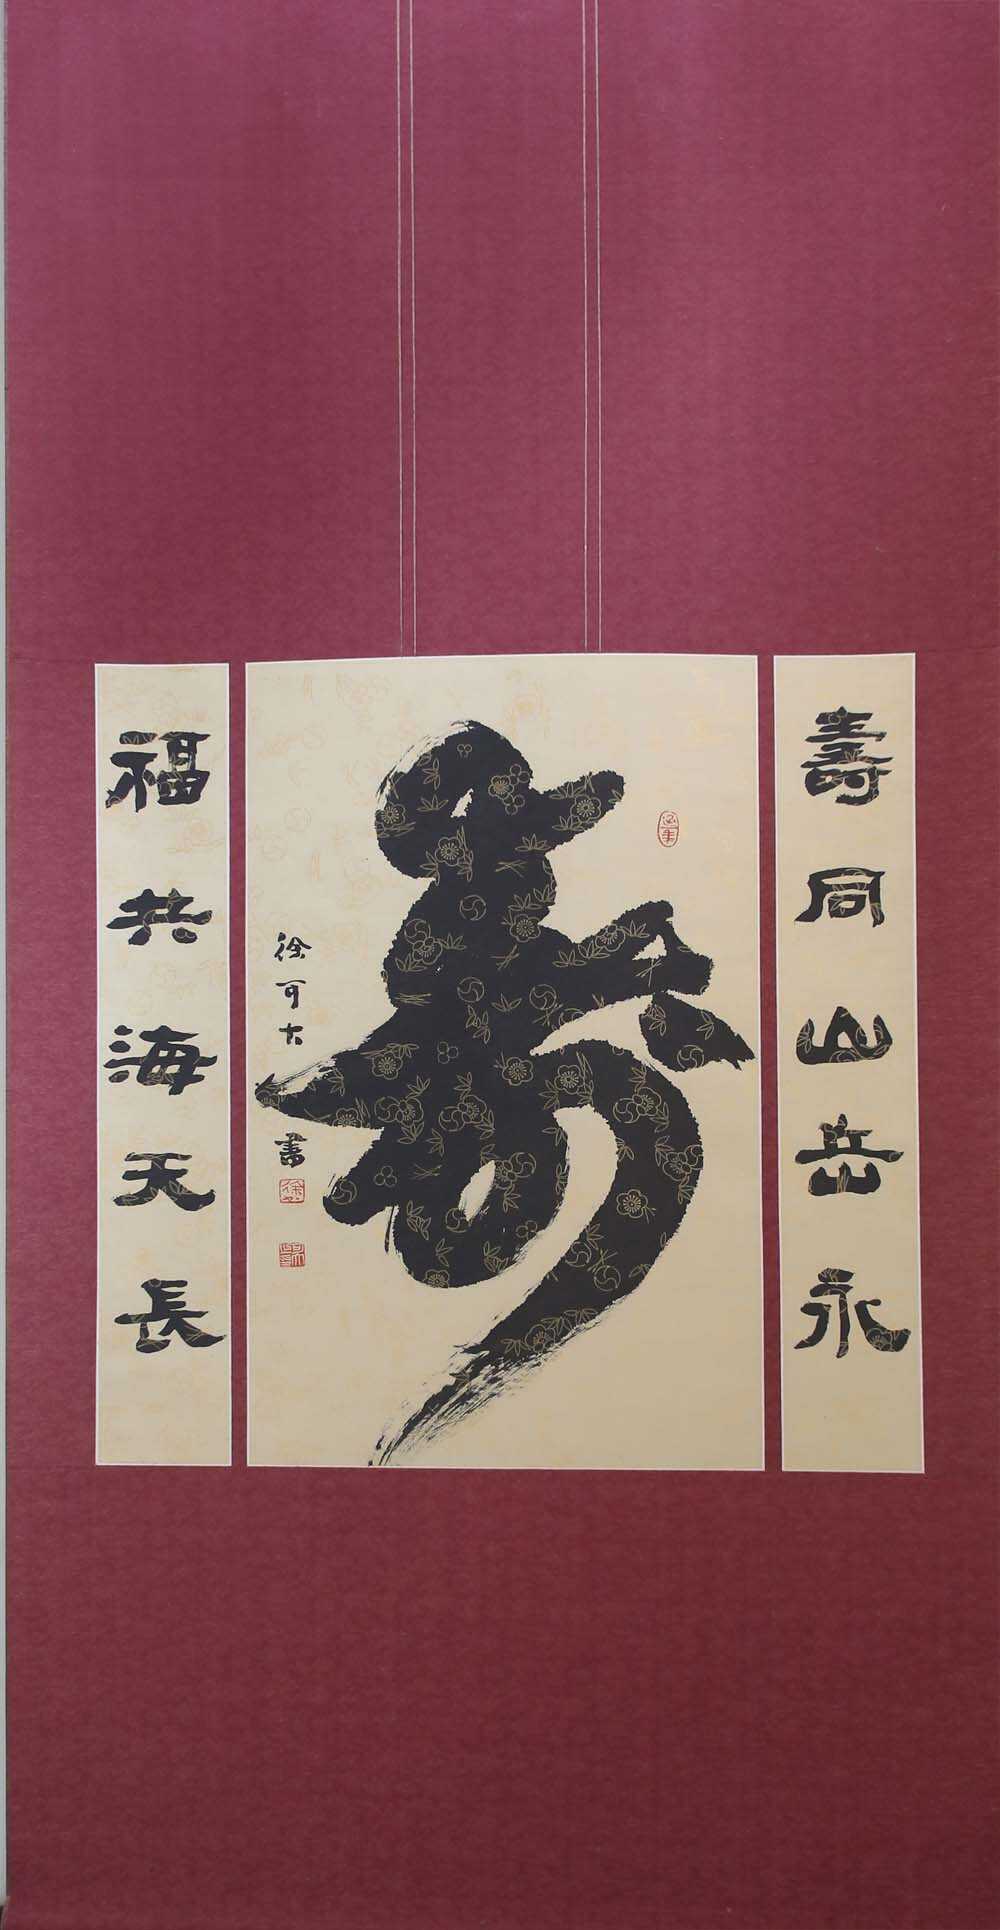 壽同山岳永
寿
徐可大書
福共海天長